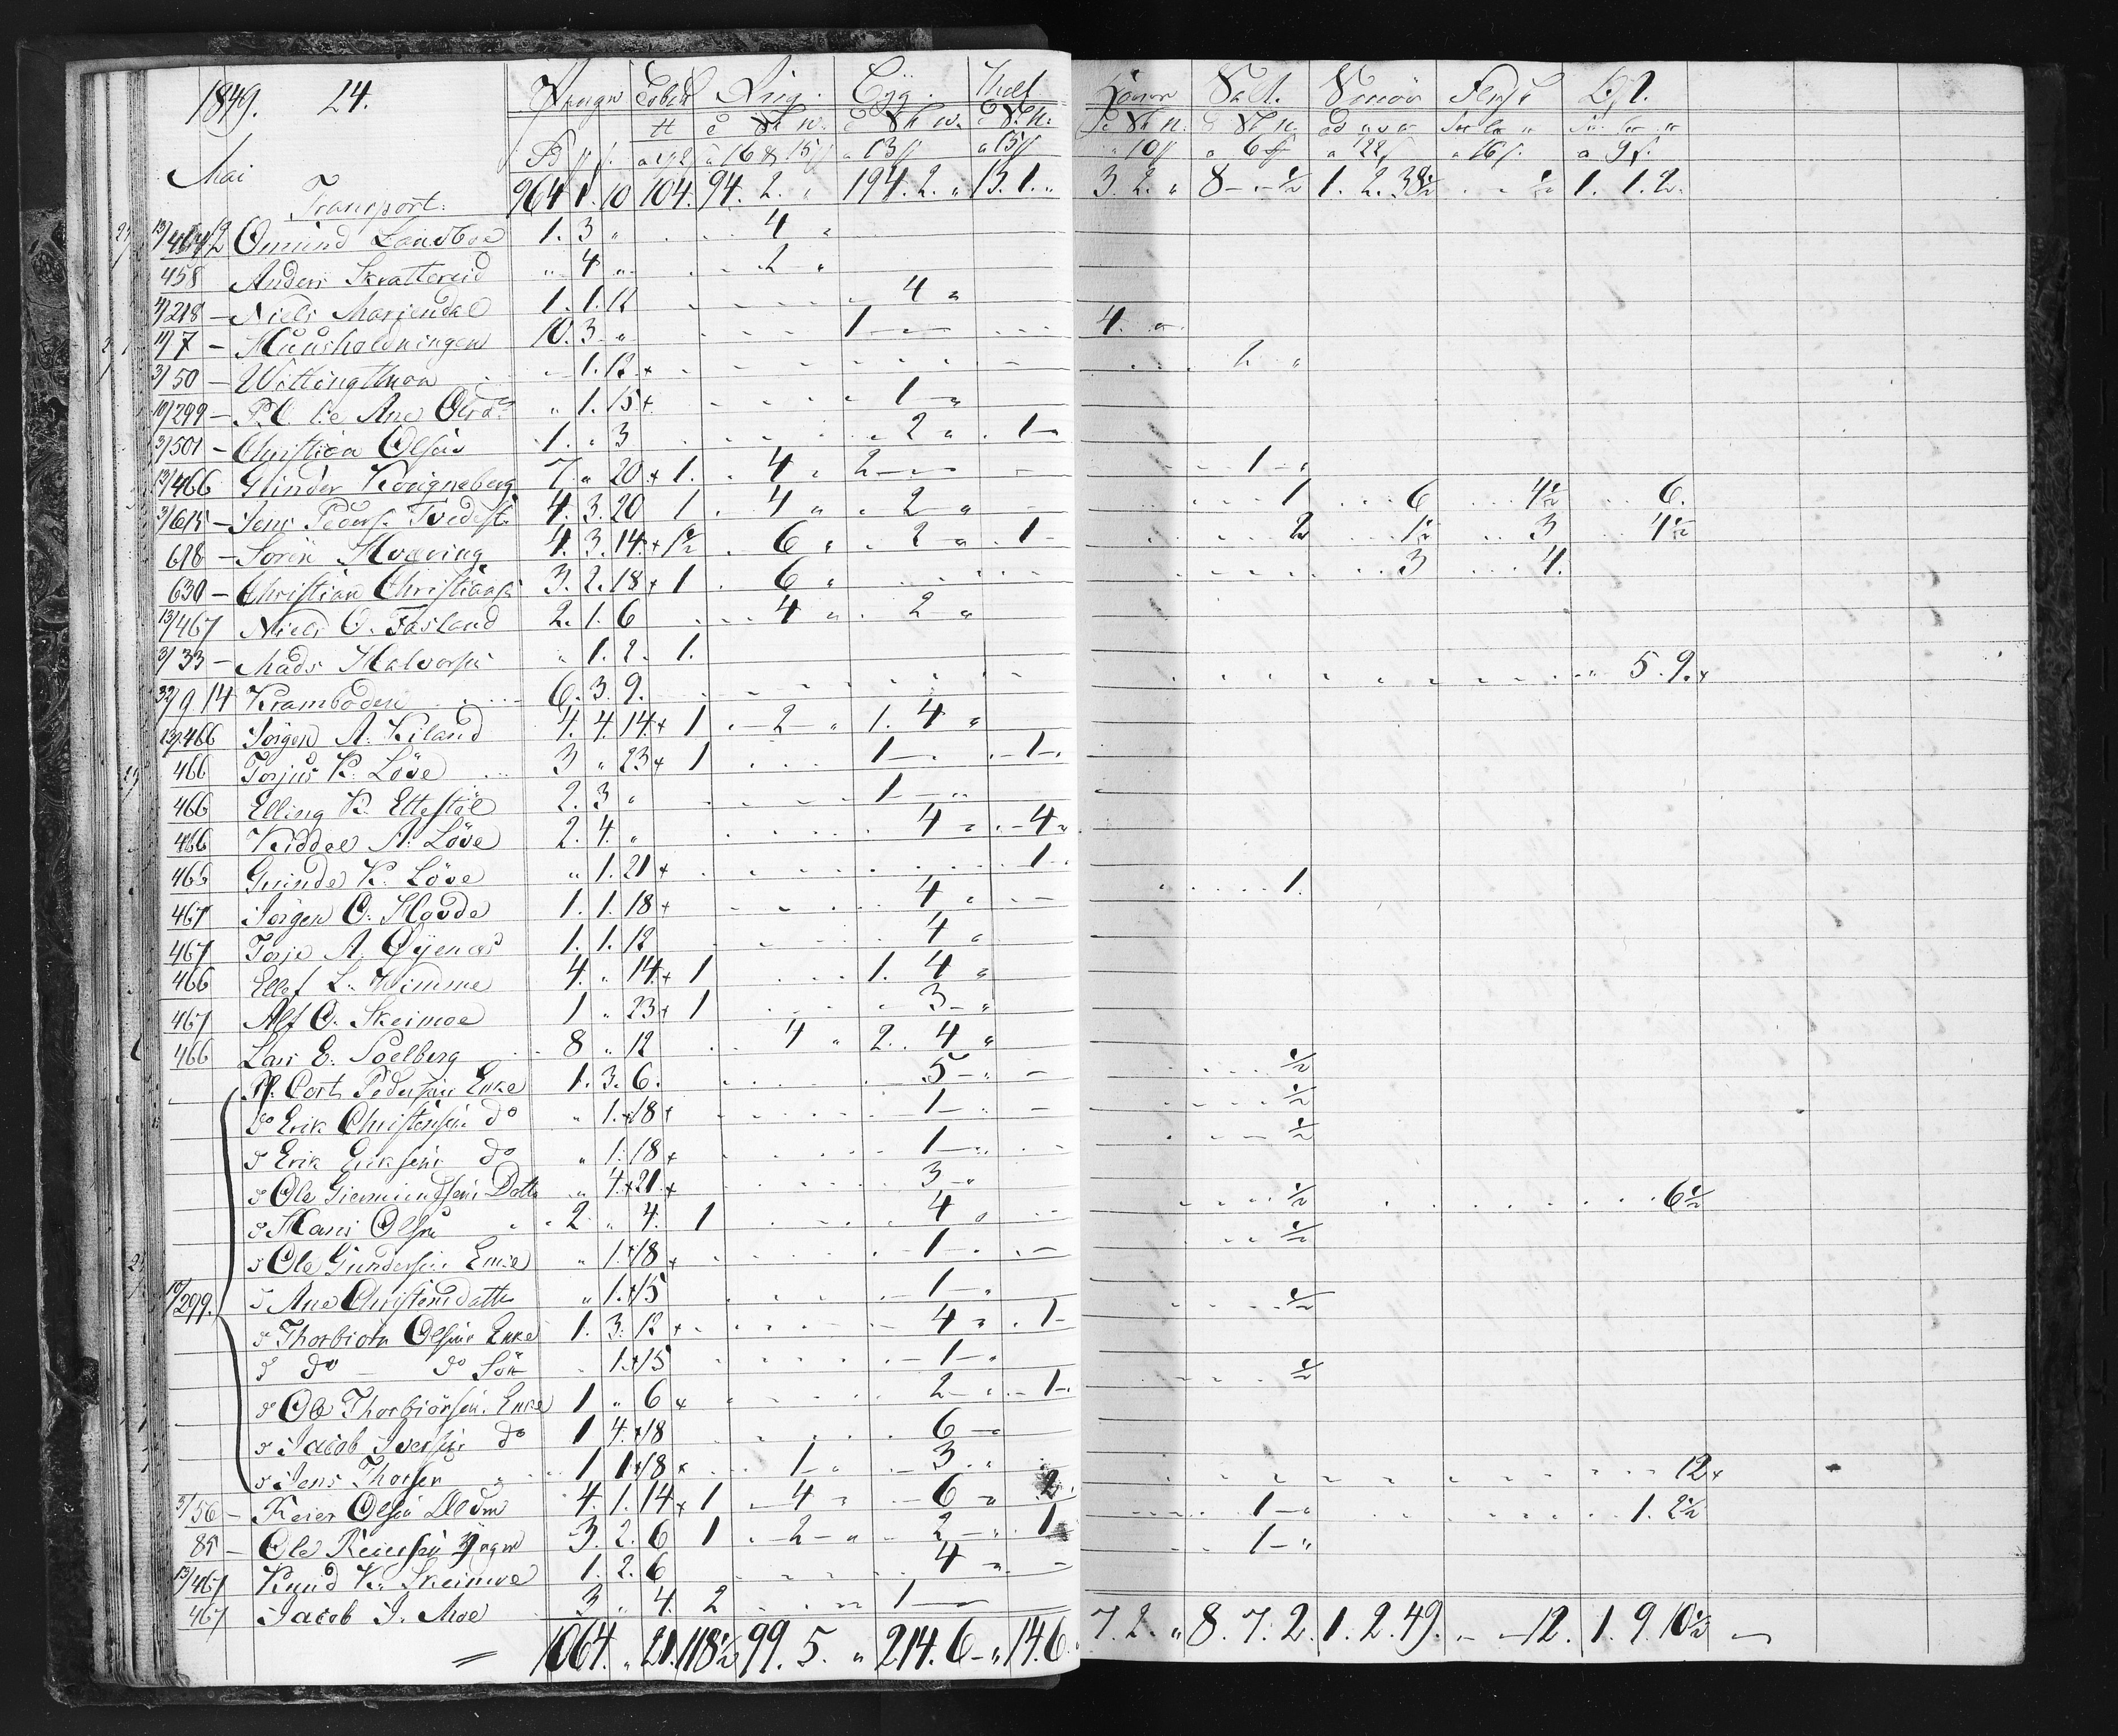 1849. 24. Tobak Rug. Byg. Malt Salt. Flesk
Mai
Transport. 964 1. 10 104. 94. 2. „ 194. 2. „ 13. 1. „ 3. 2. „ 8 - - ½ 1. 2. 38½ ½ 1. 1. 2.
Omund Landboe 1. 3 „ 4 „
458 Anders Skrattereid „ 4 „ 2 „
4/218 - Niels Mariendal 1. 1. 12 4 „
11/7 - Huusholdningen 10. 3 „ 1 - - 4. „
3/50 - 1. 12 + 2 „
10/299 - „ 1. 15 + 1 - „
3/501 - Christian Olsen 1. „ 3 2 „ 1 -
13/466 Gunder Kongneberg 7 „ 20 + 1. 4 „ 2 - - 1 - „
3/615 - Jens Peders. Tvedest. 4. 3. 20 1 4 „ 2 „ 1 6 4½ 6.
618 - Sören 4. 3. 14 + 1½ 6 „ 2 „ 1 - 2 1½ 3 4½
630 - Christian Christians. 3. 2. 18 + 1 6 „ 3 4.
13/467 Niels O. Fosland 2. 1. 6 4 „ 2 „
3/33 - Mads Halvorsen „ 1. 2. 1.
32/9 14 Kramboden 6. 3. 9. 5. 9. +
13/466 Jörgen A. Kiland 4. 4. 14 + 1 2 - „ 1. 4 „
466 Torjus K. Löve 3 „ 23 + 1 1 - 1 -
466 Elling K. Ettestöl 2. 3 „ 1 - „
466 Kiddel A. Löve 2. 4. „ 4 „ 4 „
466 Gunder K. Löve „ 1. 21 + 1 -
467 Jörgen O. Hovde 1. 1. 18 + 4 „ 1.
467 Torje A. Öyenæs 1. 1. 12 4 „
466 Ellef L. Kimme 4. „ 14 + 1 1. 4 „
467 Alf O. Skeimoe 1 „ 23 + 1 3 - „
466 Lars E. Soelberg 8 „ 12 4 „ 2. 4 „
Pl. Cort Pedersens Enke 1. 3. 6. 5 - „ ½
do Erik Christensens do „ 1. + 18 + 1 - ½
do Erik Eriksens do „ 1. 18 + 1 - „ ½
do Ole Giermundsens Datter „ 4. + 21 + 3 - „
do Hans Olsen 2 „ 4. 1 4 „ ½ 6½
do Ole Gundersens Enke „ 1. + 18 + 1 - ½
10/299. do Ane Christensdatter „ 1. + 15 1 - „
do Thorbiörn Olsens Enke 1. 3. 12 + 4 „ 1 - ½
do do - do Sön 1. + 15 1 - „
do Ole Thorbiörsens Enke 1 „ 6 + 2 - „ 1 - ½
do Jacob Iversens do 1 4. + 18 6 - „
do Jens Thorsen 1 1 + 18 + 1 „ 3 „
3/56 - Reier Olsen 4. 1. 14 + 1 4 „ 6 „ 2. 12 +
85 - Ole Reiersen 3. 2. 6 1 2 - „ 2 - „ 1 1 - „ 1. 2½
13/467 Knud K. Skeimoe 1. 2. 6 4 „ 1 - „
467 Jacob J. Moe 3 „ 4. 2 1 - -
1064. „ 21. 118½ 99. 5. „ 214. 6 - „ 14. 6. 7. 2. „ 8. 7. 2. 1. 2. 49. - - 12. 1. 9. 10½